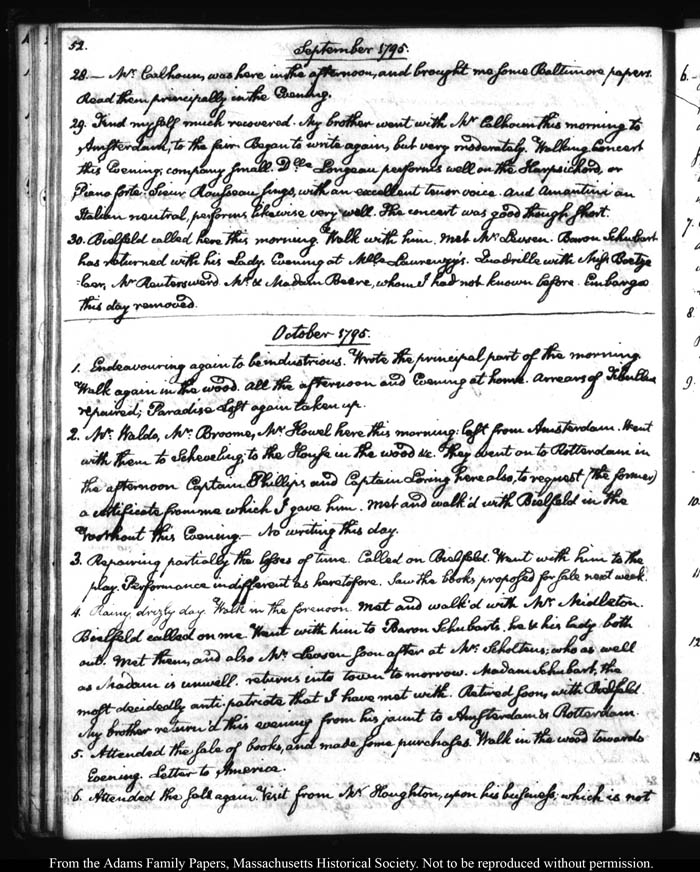 52.
September 1795.
28. — Mr. Calhoun, was here in the afternoon, and brought me some Baltimore papers.
Read them principally in the Evening.
29. Find myself much recovered. My brother went with Mr Calhoun this morning to
Amsterdam, to the fair. Began to write again, but very moderately. Walking. Concert
this Evening; company small. Dlle Longeau performs well on the Harpsichord, or
Piano forte. Sieur Rousseau sings, with an excellent tenor voice. And Amantini an
Italian neutral, performs likewise very well. The concert was good though short.
30. Bielfeld called here this morning. Walk with him. Met Mr. Levsen. Baron Schubart
has returned with his Lady. Evening at Mlle Laurenzy's. Quadrille with Miss Boetze
:laer, Mr Reutersward Mr. & Madam Beere, whom I had not known before. Embargo
this day removed.
October 1795.
1. Endeavouring again to be industrious. Wrote the principal part of the morning.
Walk again in the wood. All the afternoon and Evening at home. Arrears of Tibullus
repaired; Paradise Lost again taken up.
2. Mr. Waldo, Mr. Broome, Mr. Howel here this morning: last from Amsterdam. Went
with them to Scheveling; to the House in the wood &c. They went on to Rotterdam in
the afternoon. Captain Phillips and Captain Loring here also, to request (the former)
a certificate from me which I gave him. Met and walk'd with Bielfeld in the
Voorhout this Evening.— No writing this day.
3. Repairing partially the losses of time. Called on Bielfeld. Went with him to the
play. Performance indifferent as heretofore. Saw the books proposed for sale next week.
4. Rainy, drizly day. Walk in the forenoon. Met and walk'd with Mr. Middleton.
Bielfeld called on me. Went with him to Baron Schubart's, he & his lady both
out. Met them, and also Mr. Levsen soon after at Mr. Scholtens; who as well
as Madam is unwell. returns into town to morrow. Madam Schubart, the
most decidedly anti-patriote that I have met with. Retired soon, with Bielfeld.
My brother return'd this evening from his jaunt to Amsterdam & Rotterdam.
5. Attended the sale of books, and made some purchases. Walk in the wood towards
Evening. Letter to America.
6. Attended the sale again. Visit from Mr. Houghton, upon his business, which is not
6.
7.
8.
9.
10.
11
12
13.
From the Adams Family Papers, Massachusetts Historical Society. Not to be reproduced without permission.